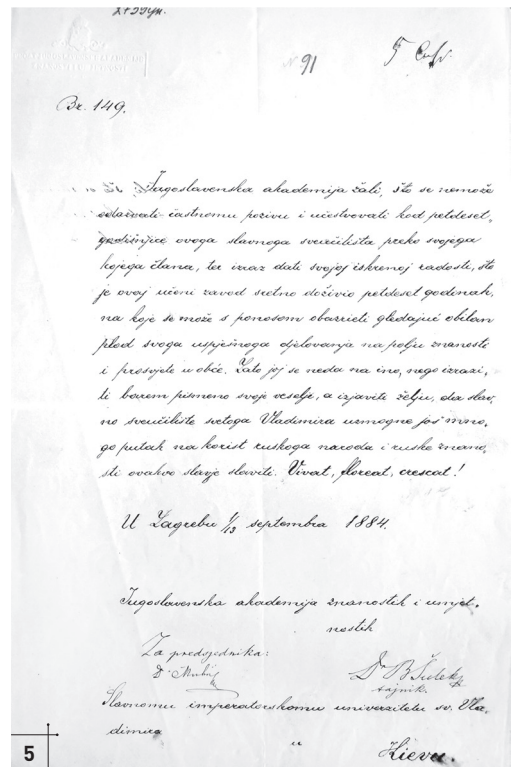 № 91
Br. 149.
Jugoslavenska akademija žali, što se nemože
odazvati častnomu pozivu i učestvovati kod petdeset-
godišnjice ovoga slavnoga sveučilišta preko svojega
kojega člana, ter izraz dati svojoj iskrenoj radosti, što
je ovaj učeni zavod sretno doživio petdeset godinah,
na koje se može s ponosom obazrieti gledajuć obilan
plod svoga uspješnoga djelovanja na polju znanosti
i prosvjete u obće. Zato joj se neda na ino, nego izrazi-
ti barem pismeno svoje veselje, a izjaviti želju, da slav-
no sveučilište svetoga Vladimira uzmogne još mno-
go putah na korist ruskoga naroda i ruske znano-
sti ovakve slavje slaviti. Vivat, floreat, crescat!
U Zagrebu 1/13 septembra 1884.
Jugoslavenska akademija znanostih i umjet-
nostih
Za predsjednika:
Dr BŠulek
tajnik.
Slavnomu imperatorskomu univerzitetu sv. Vla-
dimira
u
Kievu.
5